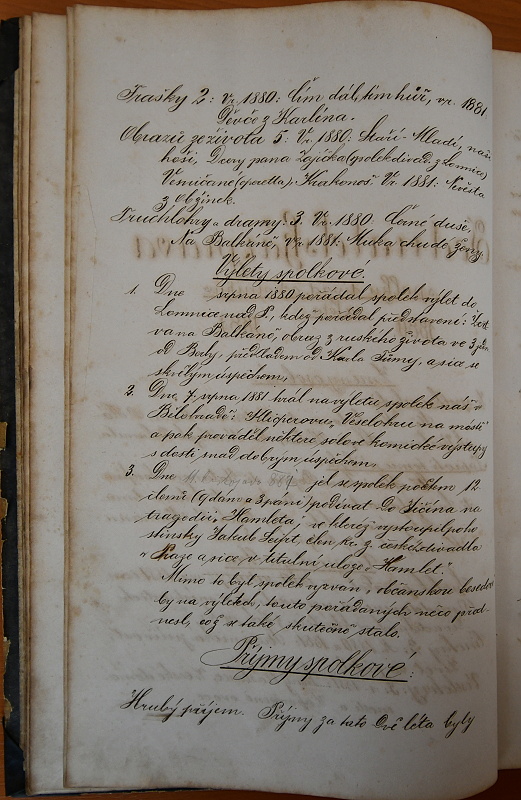 Frašky 2: Vr. 1880: Čím dál, tím hůř, vr. 1881
Děvče z Karlína.
Obrazů ze života 5: Vr. 1880: Staří-Mladí, naši
hoši, Dcery pana Zajíčka (spolek divad. z Lomnice)
Věničané (operetta), Krakonoš Vr. 1881: Nevěsta
z Obžinek.
Truchlohry a dramy: 3. Vr. 1880 Černé duše,
Na Balkáně, vr. 1881: Muka chudé ženy.
Výlety spolkové.
1. Dne srpna 1880 pořádal spolek výlet do
Lomnice nad P., kdež pořádal představení:
va na Balkáně, obraz z ruského života ve 3 jedn.
od Boby, překladem od Karla Šimy, a sice se
skvělým úspěchem,
2. Dne 7. srpna 1881 hrál na výletu spolek náš v
Bělohradě: Klicperovu „Veselohru na mostě“
a pak prováděl některé solové komické výstupy
s dosti snad dobrým úspěchem,
3. Dne jel se spolek počtem 12
členů (9 dam a 3 páni) podívat do Jičína na
tragedii „Hamleta“, ve které vystoupil poho-
stinsky Jakub Seifrt člen kr. z. českého divadla
v Praze a sice v titulní uloze „Hamlet.“
Mimo to byl spolek vyzván, občanskou besedou
by na výletech, touto pořádaných něco před-
nesl, což se také skutečně stalo.
Příjmy spolkové:
Hrubý příjem. Příjmy za tato dvě léta byly